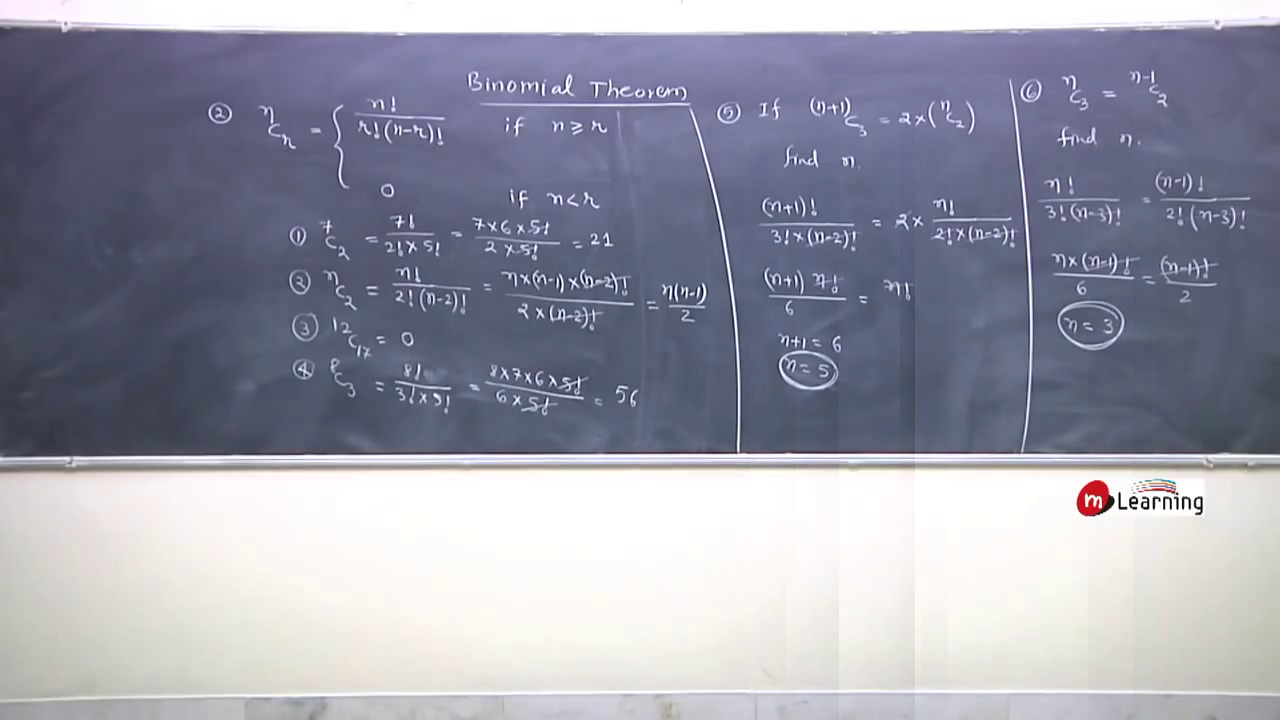 Binomial Theorem
② ⁿCᵣ = { n! / r!(n-r)! if n ≥ r
0 if n < r
① ⁷C₂ = 7! / 2!×5! = 7×6×5! / 2×5! = 21
② ⁿC₂ = n! / 2!(n-2)! = n×(n-1)×(n-2)! / 2×(n-2)! = n(n-1) / 2
③ ¹²C₁₇ = 0
④ ⁸C₃ = 8! / 3!×5! = 8×7×6×5! / 6×5! = 56
⑤ If ⁽ⁿ⁺¹⁾C₃ = 2×(ⁿC₂)
find n.
(n+1)! / 3!×(n-2)! = 2× n! / 2!×(n-2)!
(n+1) n! / 6 = n!
n+1 = 6
n = 5
⑥ ⁿC₃ = ⁿ⁻¹C₂
find n.
n! / 3!(n-3)! = (n-1)! / 2!(n-3)!
n×(n-1)! / 6 = (n-1)! / 2
n = 3
m Learning